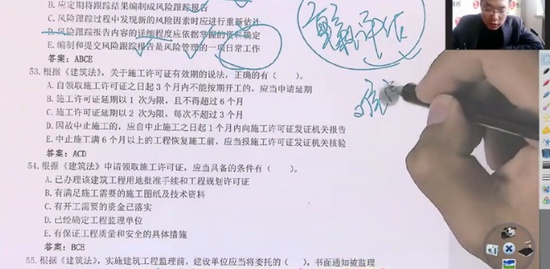 B. 应定期将跟踪结果编制成风险跟踪报告
C. 风险跟踪过程中发现新的风险因素时应进行重新估计
D. 风险跟踪报告内容的详细程度应依据掌握的资料确定
E. 编制和提交风险跟踪报告是风险管理的一项日常工作
答案：ABCE
53. 根据《建筑法》，关于施工许可证有效期的说法，正确的有（　）。
A. 自领取施工许可证之日起 3 个月内不能按期开工的，应当申请延期
B. 施工许可证延期以 1 次为限，且不得超过 6 个月
C. 施工许可证延期以 2 次为限，每次不超过 3 个月
D. 因故中止施工的，应自中止施工之日起 1 个月内向施工许可证发证机关报告
E. 中止施工满 6 个月以上的工程恢复施工前，应当报施工许可证发证机关核验
答案：ACD
54. 根据《建筑法》申请领取施工许可证，应当具备的条件有（　）。
A. 已办理该建筑工程用地批准手续和工程规划许可证
B. 有满足施工需要的施工图纸及技术资料
C. 有开工需要的资金已落实
D. 已经确定工程监理单位
E. 有保证工程质量和安全的具体措施
答案：BCE
55. 根据《建筑法》，实施建筑工程监理前，建设单位应当将委托的（　），书面通知被监理
评估